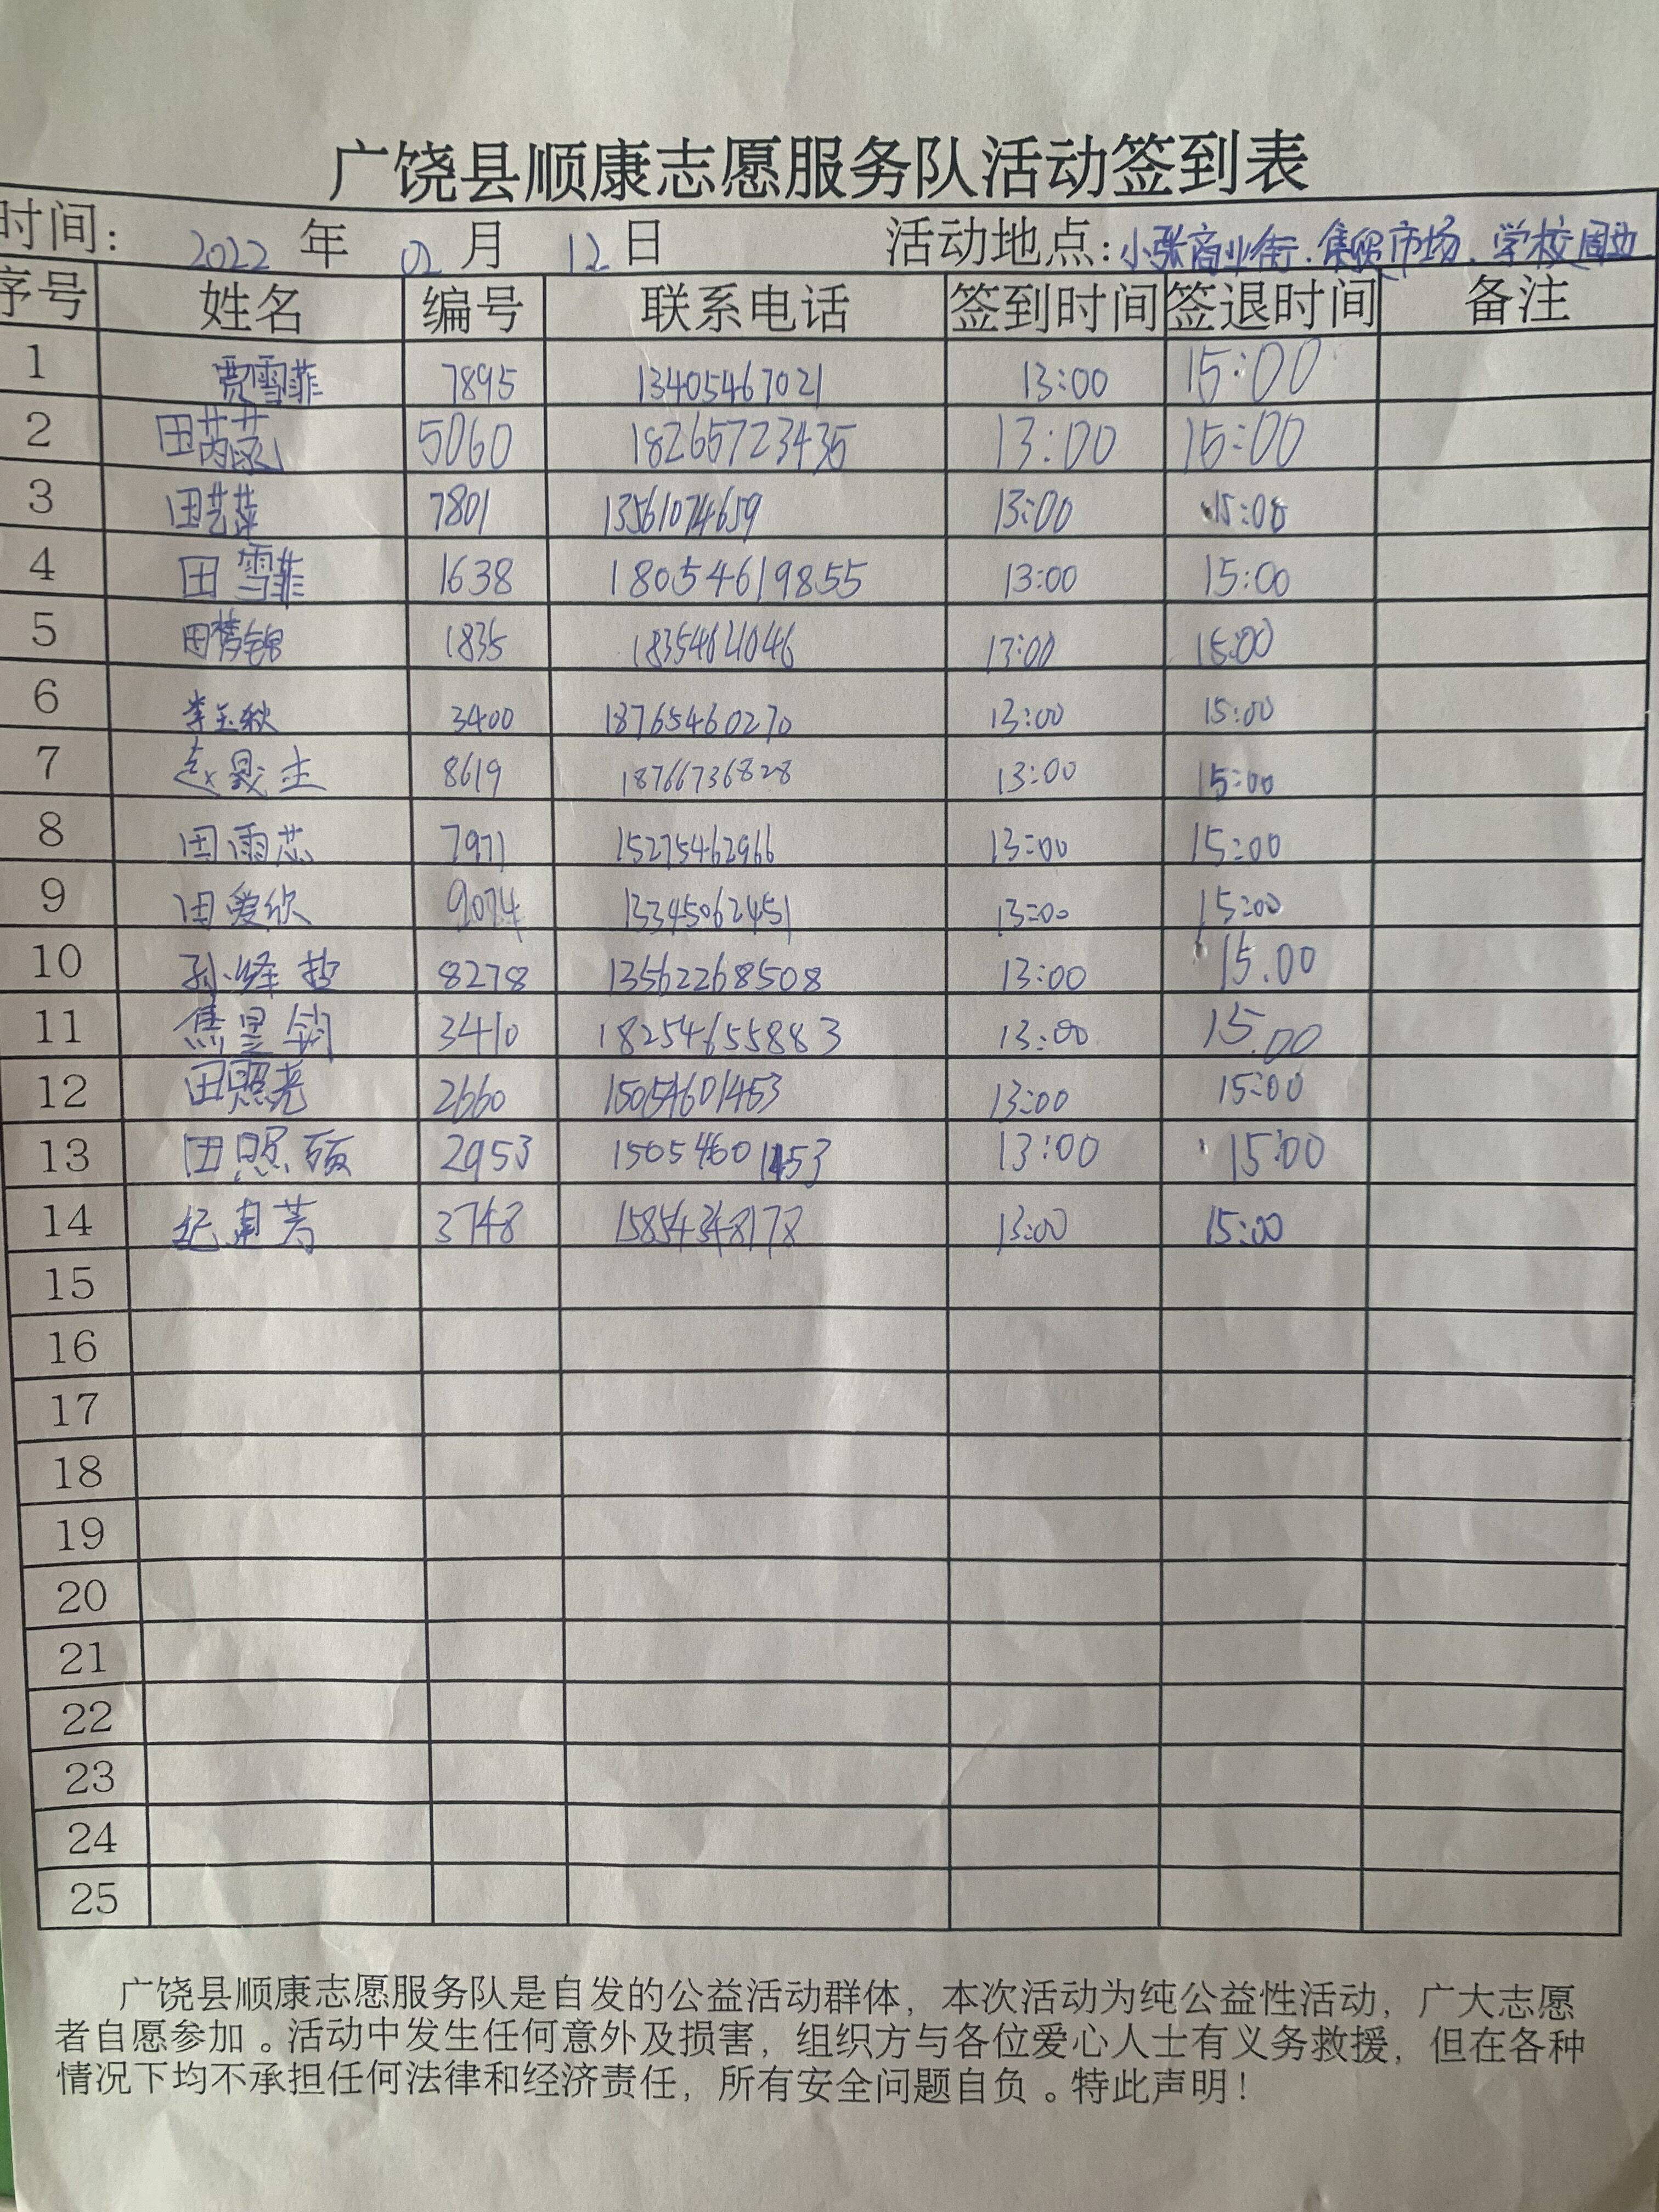 广饶县顺康志愿服务队活动签到表
时间： 2022 年 02 月 12 日 活动地点：小张商业街、集贸市场、学校周边
序号 姓名 编号 联系电话 签到时间 签退时间 备注
1 贾雪菲 7895 13405467021 13:00 15:00
2 田 5060 18265723435 13:00 15:00
3 田艺萍 7801 13561074659 13:00 15:00
4 田雪菲 1638 18054619855 13:00 15:00
5 田 1835 13:00 15:00
6 李玉秋 3400 18765460270 13:00 15:00
7 赵晟圭 8619 18766736828 13:00 15:00
8 田雨芯 7971 15275462966 13:00 15:00
9 田爱欣 9074 13345062451 13:00 15:00
10 孙绎哲 8278 13562268508 13:00 15.00
11 焦昱钧 3410 18254655883 13:00 15.00
12 田照亮 2660 15054601453 13:00 15:00
13 田照硕 2953 15054601453 13:00 15:00
14 纪 3748 15854348178 13:00 15:00
15
16
17
18
19
20
21
22
23
24
25
广饶县顺康志愿服务队是自发的公益活动群体，本次活动为纯公益性活动，广大志愿
者自愿参加。活动中发生任何意外及损害，组织方与各位爱心人士有义务救援，但在各种
情况下均不承担任何法律和经济责任，所有安全问题自负。特此声明！